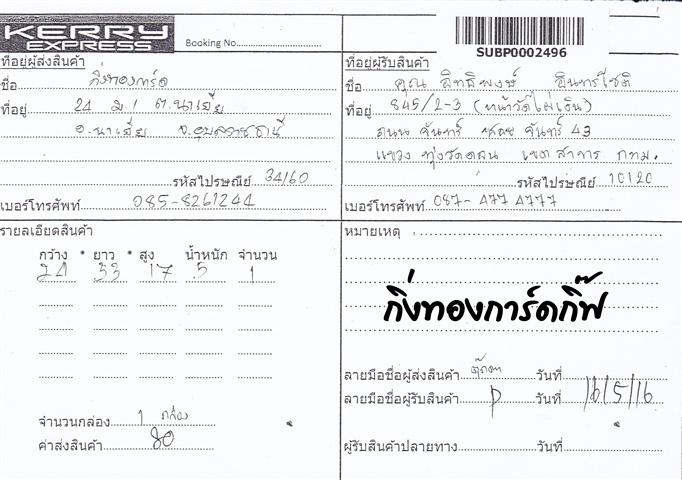 KERRY
EXPRESS
Booking No.
SUBP0002496
ที่อยู่ผู้ส่งสินค้า
ชื่อ กิ่งทองการ์ด
ที่อยู่ 24 ม.1 ต.นาเยีย
อ.นาเยีย จ.อุบลราชธานี
รหัสไปรษณีย์ 34160
เบอร์โทรศัพท์ 085-8261244
ที่อยู่ผู้รับสินค้า
ชื่อ คุณ อิทธิพงษ์ อินทรโชติ
ที่อยู่ 845/2-3 (หน้าวัดไผ่เงิน)
ถนน จันทร์ ซอย จันทร์ 43
แขวง ทุ่งวัดดอน เขต สาทร กทม.
รหัสไปรษณีย์ 10120
เบอร์โทรศัพท์ 087-477 4777
รายละเอียดสินค้า
กว้าง * ยาว * สูง น้ำหนัก จำนวน
24 33 17 5 1
จำนวนกล่อง 1 กล่อง
ค่าส่งสินค้า 80
หมายเหตุ :
กิ่งทองการ์ดกิ๊ฟ
ลายมือชื่อผู้ส่งสินค้า วันที่
ลายมือชื่อผู้รับสินค้า วันที่ 16/5/16
ผู้รับสินค้าปลายทาง วันที่